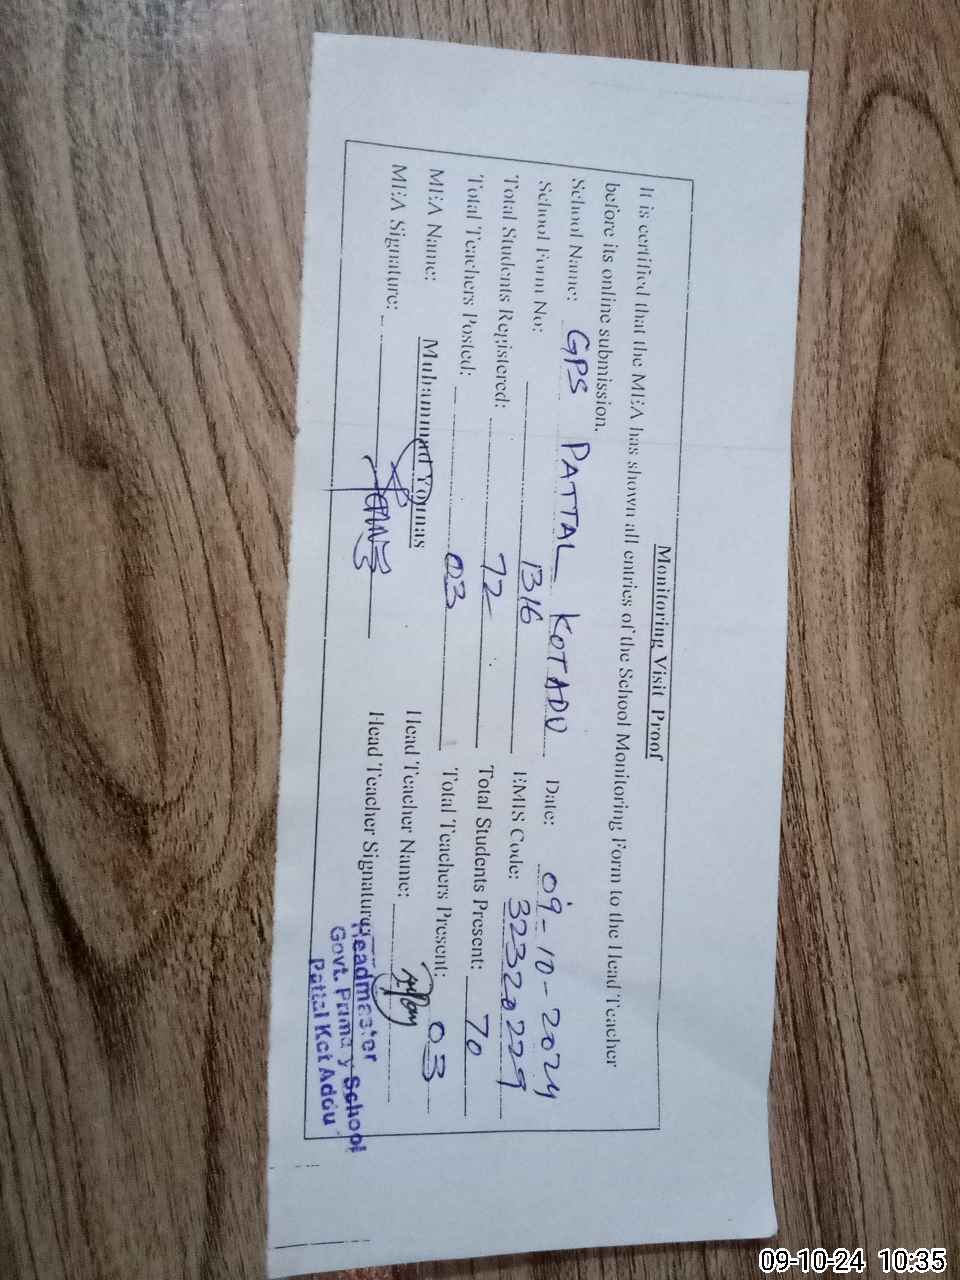 Monitoring Visit Proof
It is certified that the MEA has shown all entries of the School Monitoring Form to the Head Teacher
before its online submission.
School Name: GPS PATTAL KOTADU Date: 09-10-2024
School Form No: 1316 EMIS Code: 32320229
Total Students Registered: 72 Total Students Present: 70
Total Teachers Posted: 03 Total Teachers Present: 03
MEA Name: Muhammad Younas Head Teacher Name:
MEA Signature: Head Teacher Signature:
Headmaster
Govt. Primary School
Pattal Kot Addu
09-10-24 10:35